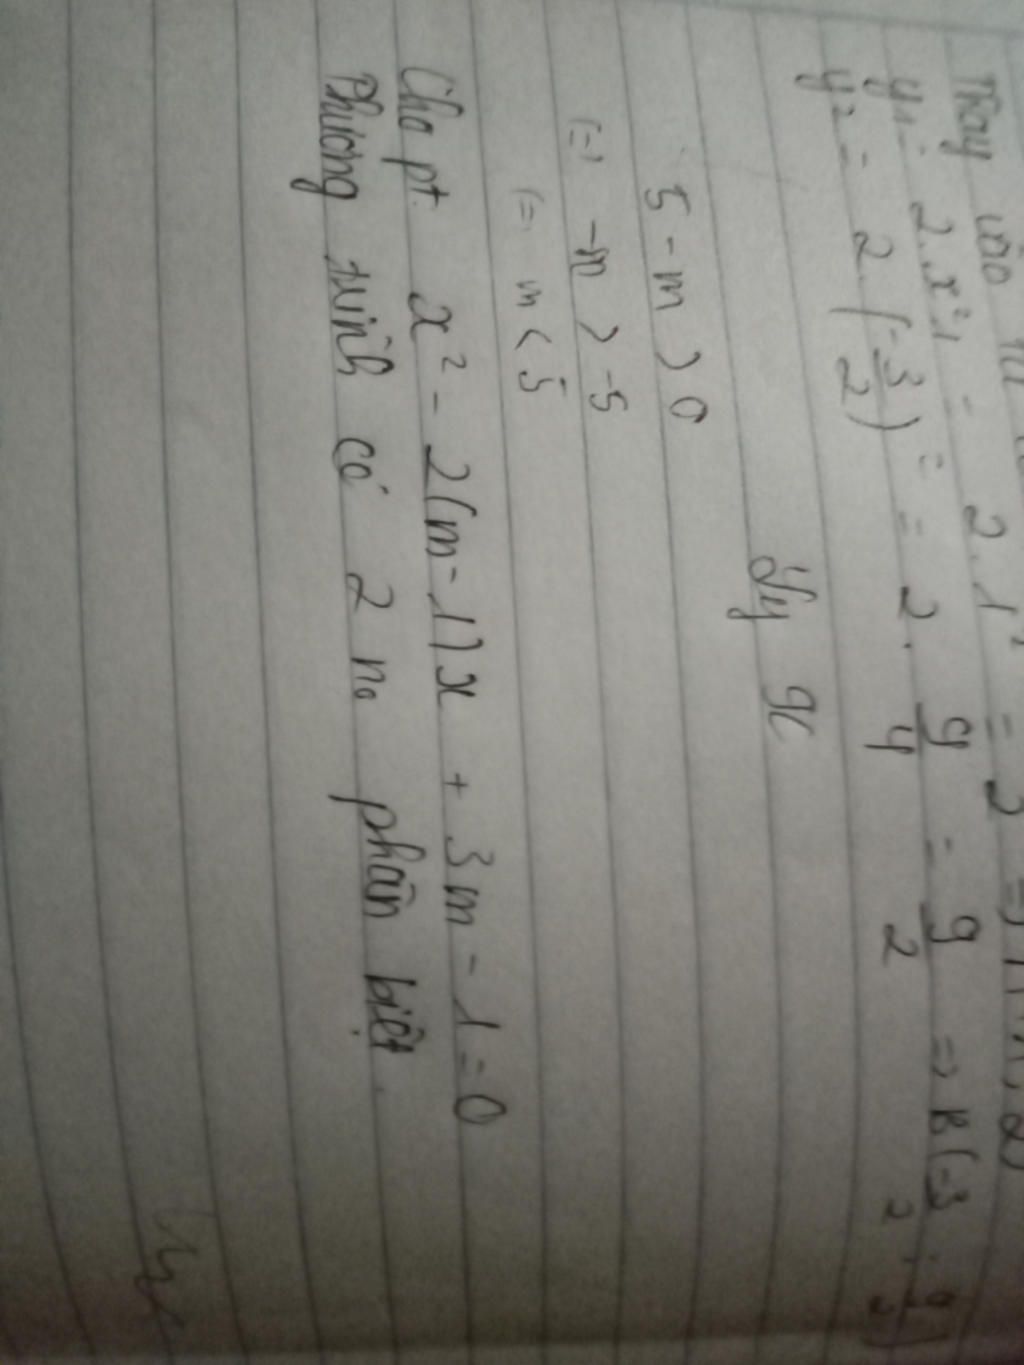 Thay vào
y₁ = 2.x²₁ = 2.1² = 2 =>
y₂ = 2.(-3/2)² = 2.9/4 = 9/2 => B(-3/2; 9/2)
5 - m > 0
(=) -m > -5
(=) m < 5
Cho pt x² - 2(m-1)x + 3m - 1 = 0
Phương trình có 2 n₀ phân biệt.